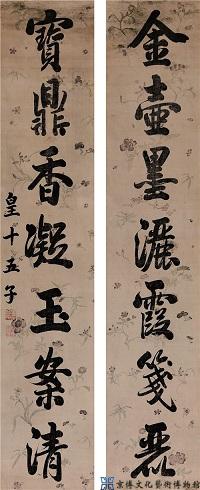 金壺墨灑霞箋麗
寶鼎香凝玉案清
皇十五子
京博文化藝術博物館